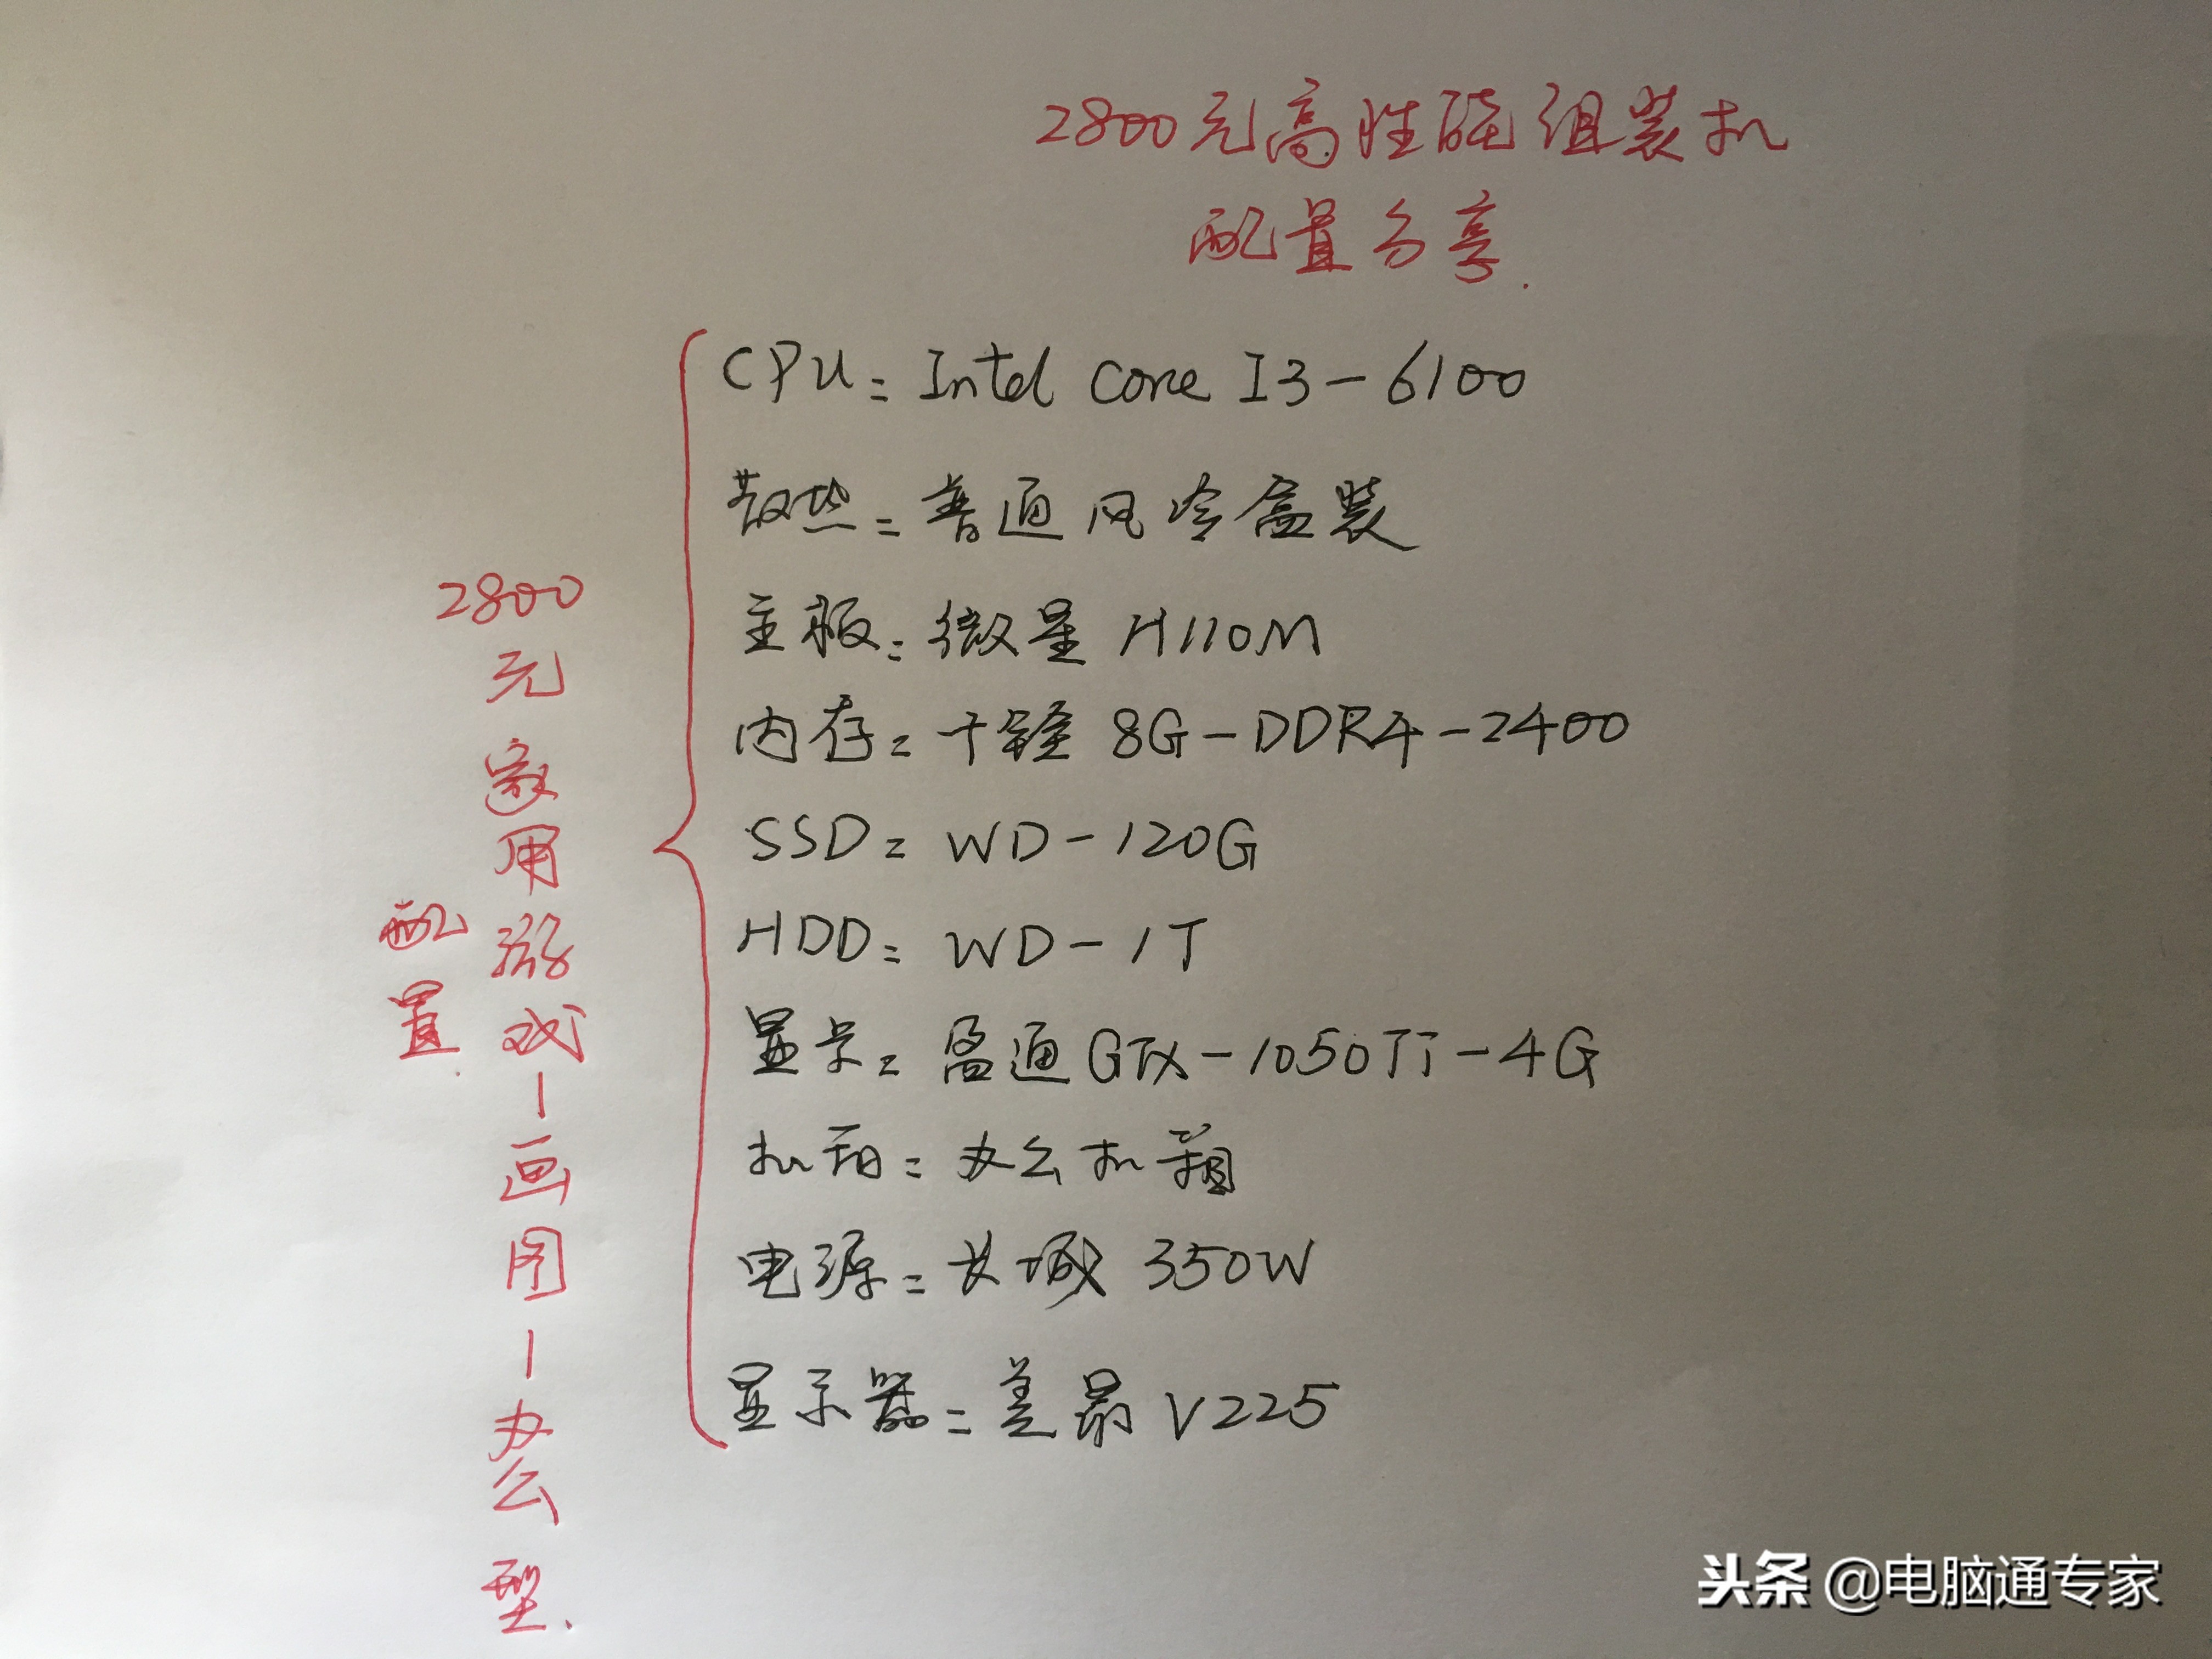 2800元高性能组装机
配置分享.
2800元家用游戏-画图-办公型.
配置.
CPU: Intel Core I3-6100
散热: 普通风冷盒装
主板: 微星 H110M
内存: 十铨 8G-DDR4-2400
SSD: WD-120G
HDD: WD-1T
显卡: 盈通GTX-1050TI-4G
机箱: 办公机箱
电源: 长城 350W
显示器: V225
头条 @电脑通专家